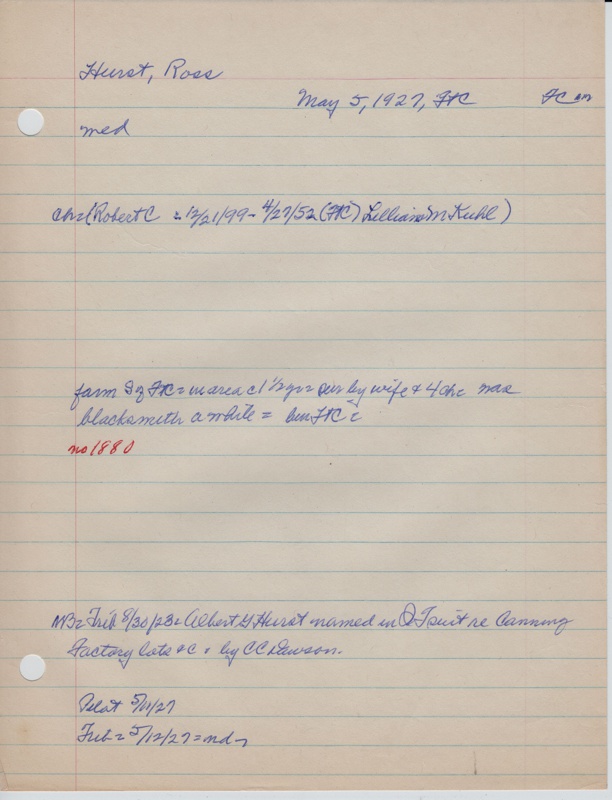 Hurst, Ross
May 5, 1927, FtC FC
med
ch=(Robert C = 12/21/99- 4/27/52 (FtC) Lillian M Kuhl)
farm S of FtC = in area c 1 1/2 yr = sur by wife + 4 ch = was
blacksmith a while = bur FtC
no 1880
NB= Trib 8/30/23= Albert G Hurst named in QT suit re Canning
Factory lots &c = by CC Dawson.
Pilot 5/11/27
Trib = 5/12/27 = nd-